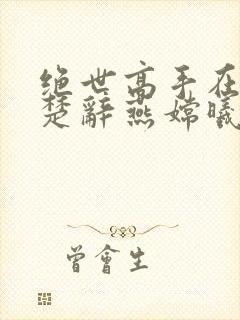 绝世高手在
楚辞燕嫦曦
曾會生